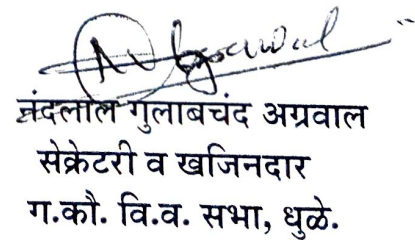 नंदलाल गुलाबचंद अग्रवाल
सेक्रेटरी व खजिनदार
ग.कौ. वि.व. सभा, धुळे.